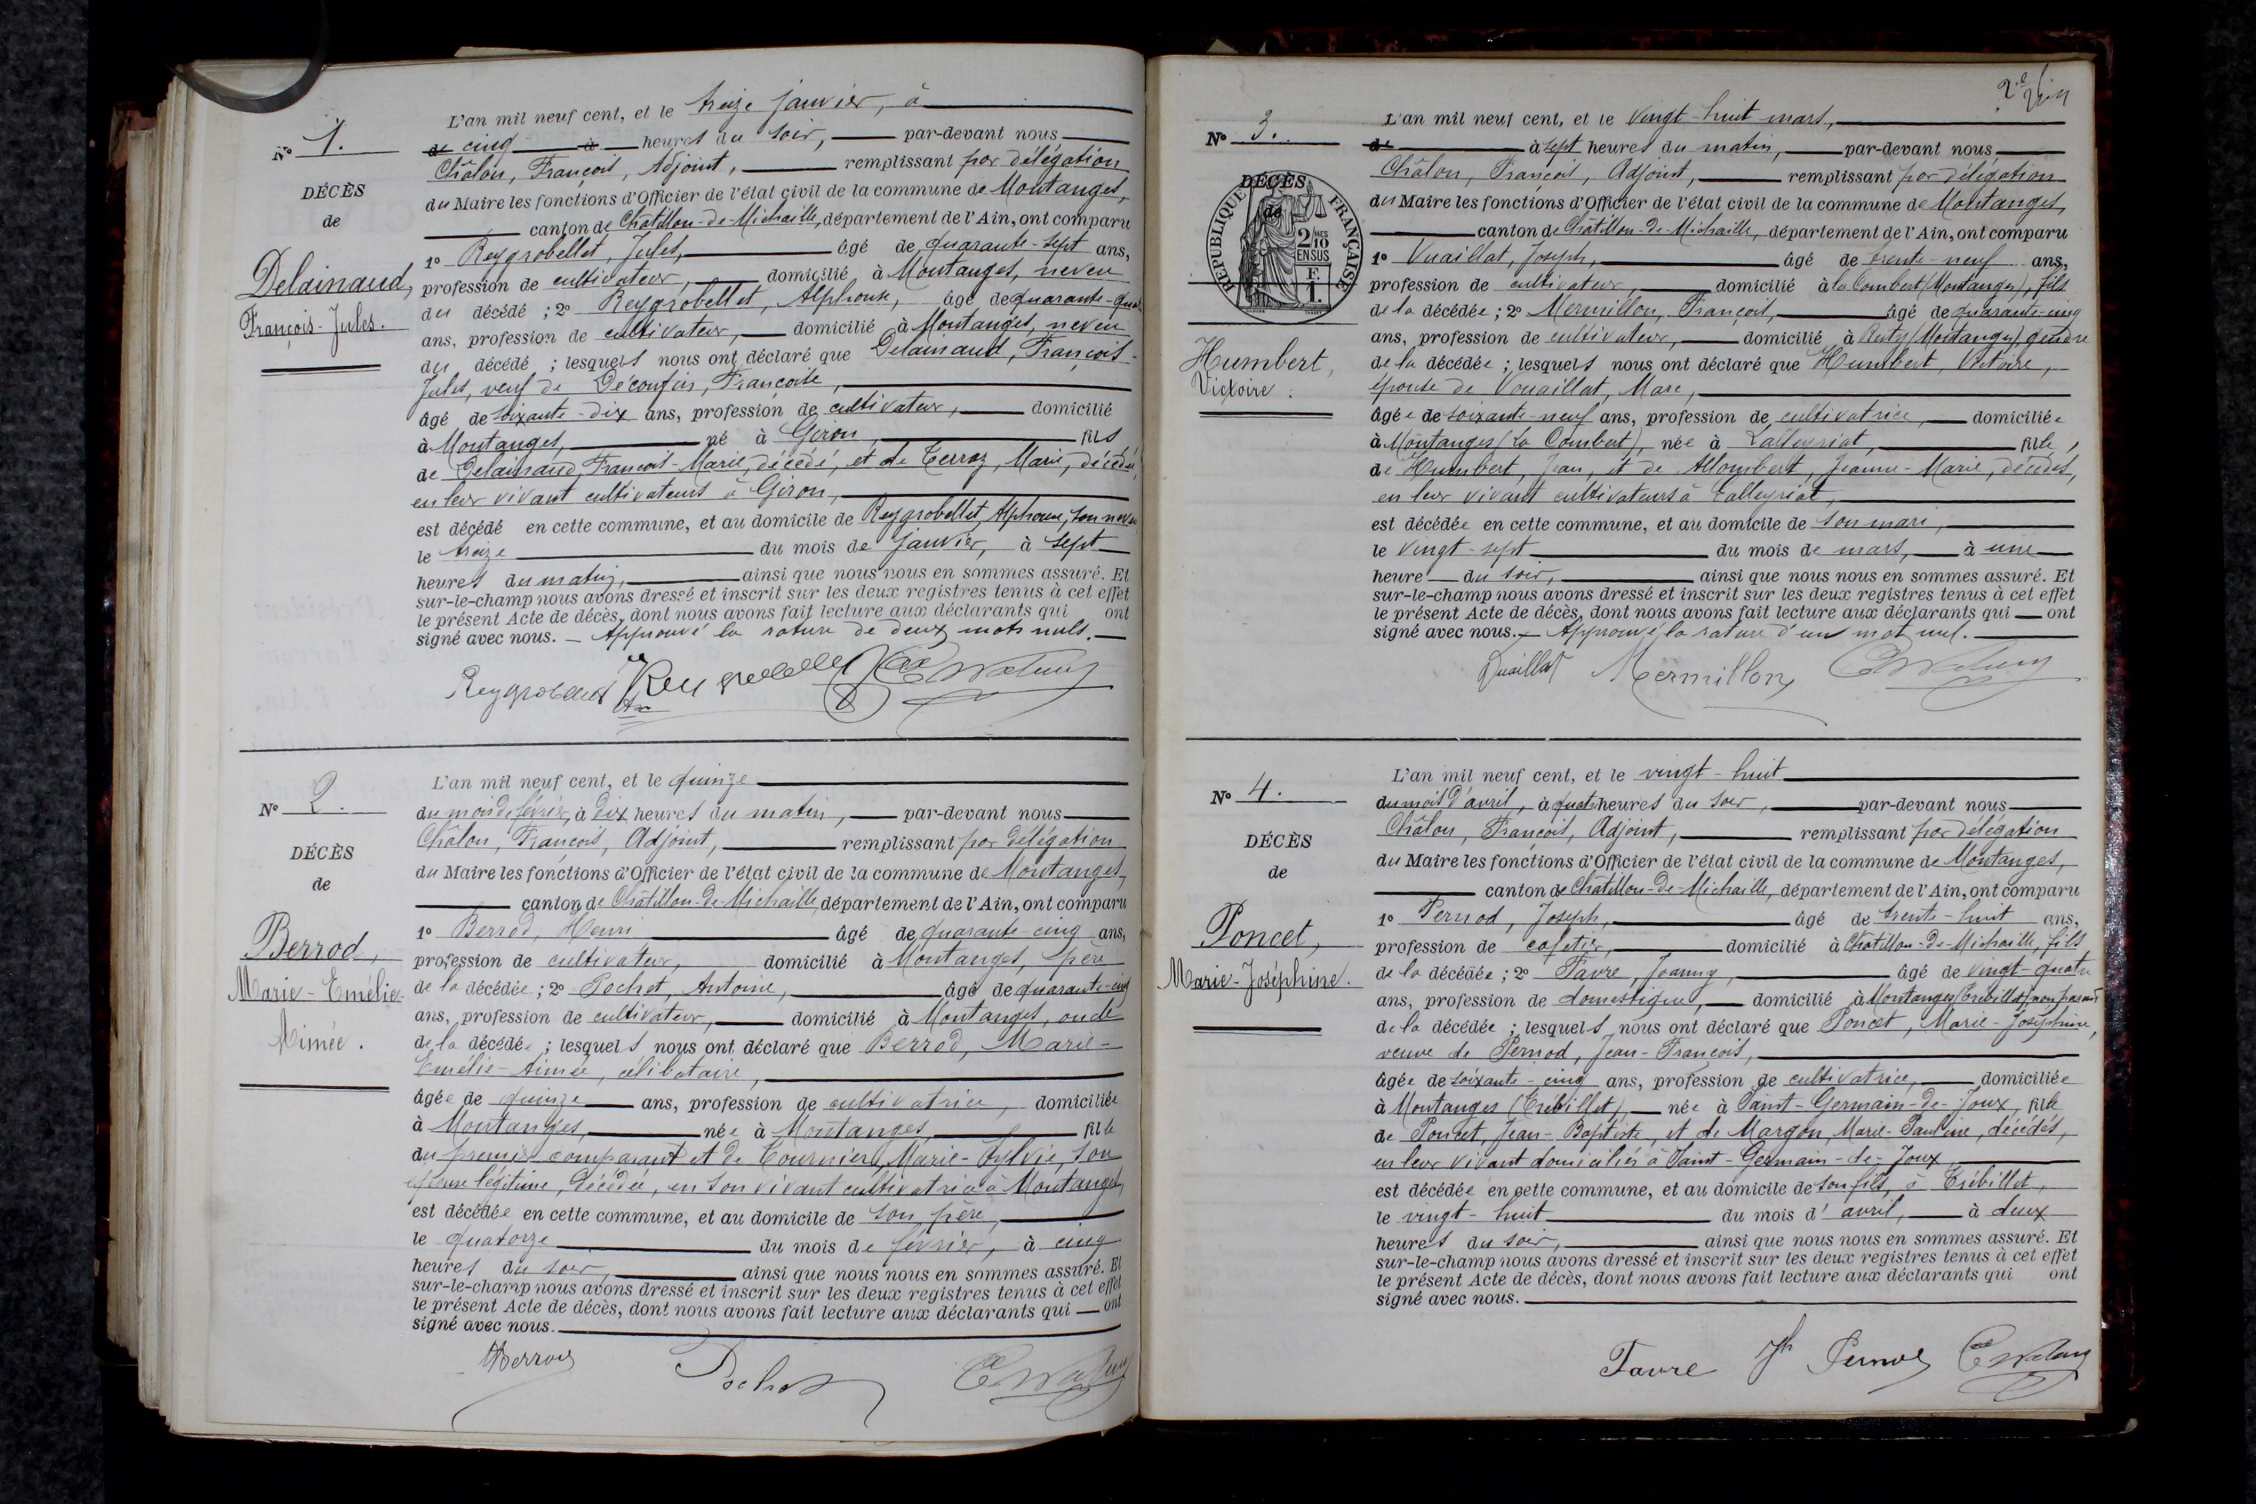 N° 1.
DÉCÈS
de
Delainaud,
François-Jules.
L'an mil neuf cent, et le treize janvier, à
de cinq à heures du soir, par-devant nous
Châlon, François, Adjoint, remplissant par délégation
du Maire les fonctions d'Officier de l'état civil de la commune de Montanges,
canton de Châtillon-de-Michaille, département de l'Ain, ont comparu
1° Reygrobellet, Jules, âgé de quarante-sept ans,
profession de cultivateur, domicilié à Montanges, neveu
du décédé ; 2° Reygrobellet, Alphonse, âgé de quarante-
ans, profession de cultivateur, domicilié à Montanges, neveu
du décédé ; lesquels nous ont déclaré que Delainaud, François-
Jules, veuf de Découfin, Françoise,
âgé de soixante-dix ans, profession de cultivateur, domicilié
à Montanges, né à Giron, fils
de Delainaud, François-Marie, décédé, et de Terraz, Marie, décédée,
en leur vivant cultivateurs à Giron,
est décédé en cette commune, et au domicile de Reygrobellet, Alphonse, son neveu
le treize du mois de janvier, à sept
heures du matin, ainsi que nous nous en sommes assuré. Et
sur-le-champ nous avons dressé et inscrit sur les deux registres tenus à cet effet
le présent Acte de décès, dont nous avons fait lecture aux déclarants qui ont
signé avec nous. — Approuvé la rature de deux mots nuls.
Reygrobellet
N° 2.
DÉCÈS
de
Berrod,
Marie-Emélie-
Aimée.
L'an mil neuf cent, et le quinze
du mois de février, à dix heures du matin, par-devant nous
Châlon, François, Adjoint, remplissant par délégation
du Maire les fonctions d'Officier de l'état civil de la commune de Montanges,
canton de Châtillon-de-Michaille, département de l'Ain, ont comparu
1° Berrod, Henri âgé de quarante-cinq ans,
profession de cultivateur, domicilié à Montanges, père
de la décédée ; 2° Pochet, Antoine, âgé de quarante-cinq
ans, profession de cultivateur, domicilié à Montanges, oncle
de la décédée ; lesquels nous ont déclaré que Berrod, Marie-
Emélie-Aimée, célibataire,
âgée de quinze ans, profession de cultivatrice, domiciliée
à Montanges, née à Montanges, fille
du premier comparant et de Tournier, Marie-Sylvie, son
épouse légitime, décédée, en son vivant cultivatrice à Montanges,
est décédée en cette commune, et au domicile de son père,
le quatorze du mois de février, à cinq
heures du soir, ainsi que nous nous en sommes assuré. Et
sur-le-champ nous avons dressé et inscrit sur les deux registres tenus à cet effet
le présent Acte de décès, dont nous avons fait lecture aux déclarants qui — ont
signé avec nous.
HBerrod Pochet
N° 3.
DÉCÈS
de
RÉPUBLIQUE FRANÇAISE
2/10 MES
EN SUS
F.
1.
Humbert,
Victoire.
L'an mil neuf cent, et le vingt-huit mars,
de à sept heures du matin, par-devant nous
Châlon, François, Adjoint, remplissant par délégation
du Maire les fonctions d'Officier de l'état civil de la commune de Montanges,
canton de Châtillon-de-Michaille, département de l'Ain, ont comparu
1° Vuaillat, Joseph, âgé de trente-neuf ans,
profession de cultivateur, domicilié à la Combert (Montanges), fils
de la décédée ; 2° Mermillon, François, âgé de quarante-cinq
ans, profession de cultivateur, domicilié à (Montanges), gendre
de la décédée ; lesquels nous ont déclaré que Humbert, Victoire,
épouse de Vouaillat, Marc,
âgée de soixante-neuf ans, profession de cultivatrice, domiciliée
à Montanges (la Combert), née à Lalleyriat, fille
de Humbert, Jean, et de Allombert, Jeanne-Marie, décédés,
en leur vivant cultivateurs à Lalleyriat,
est décédée en cette commune, et au domicile de son mari,
le vingt-sept du mois de mars, à une
heure du soir, ainsi que nous nous en sommes assuré. Et
sur-le-champ nous avons dressé et inscrit sur les deux registres tenus à cet effet
le présent Acte de décès, dont nous avons fait lecture aux déclarants qui — ont
signé avec nous. — Approuvé la rature d'un mot nul.
Vuaillat Mermillon
N° 4.
DÉCÈS
de
Poncet,
Marie-Joséphine.
L'an mil neuf cent, et le vingt-huit
du mois d'avril, à quatre heures du soir, par-devant nous
Châlon, François, Adjoint, remplissant par délégation
du Maire les fonctions d'Officier de l'état civil de la commune de Montanges,
canton de Châtillon-de-Michaille, département de l'Ain, ont comparu
1° Pernod, Joseph, âgé de trente-huit ans,
profession de cafetier, domicilié à Châtillon-de-Michaille, fils
de la décédée ; 2° Favre, Joanny, âgé de vingt-quatre
ans, profession de domestique, domicilié à Montanges (Trébillet), non parent
de la décédée ; lesquels nous ont déclaré que Poncet, Marie-Joséphine,
veuve de Pernod, Jean-François,
âgée de soixante-cinq ans, profession de cultivatrice, domiciliée
à Montanges (Trébillet), née à Saint-Germain-de-Joux, fille
de Poncet, Jean-Baptiste, et de Margon, Marie-Pauline, décédés,
en leur vivant domiciliés à Saint-Germain-de-Joux
est décédée en cette commune, et au domicile de son fils, à Trébillet,
le vingt-huit du mois d'avril, à deux
heures du soir, ainsi que nous nous en sommes assuré. Et
sur-le-champ nous avons dressé et inscrit sur les deux registres tenus à cet effet
le présent Acte de décès, dont nous avons fait lecture aux déclarants qui ont
signé avec nous.
Favre Jh Pernod